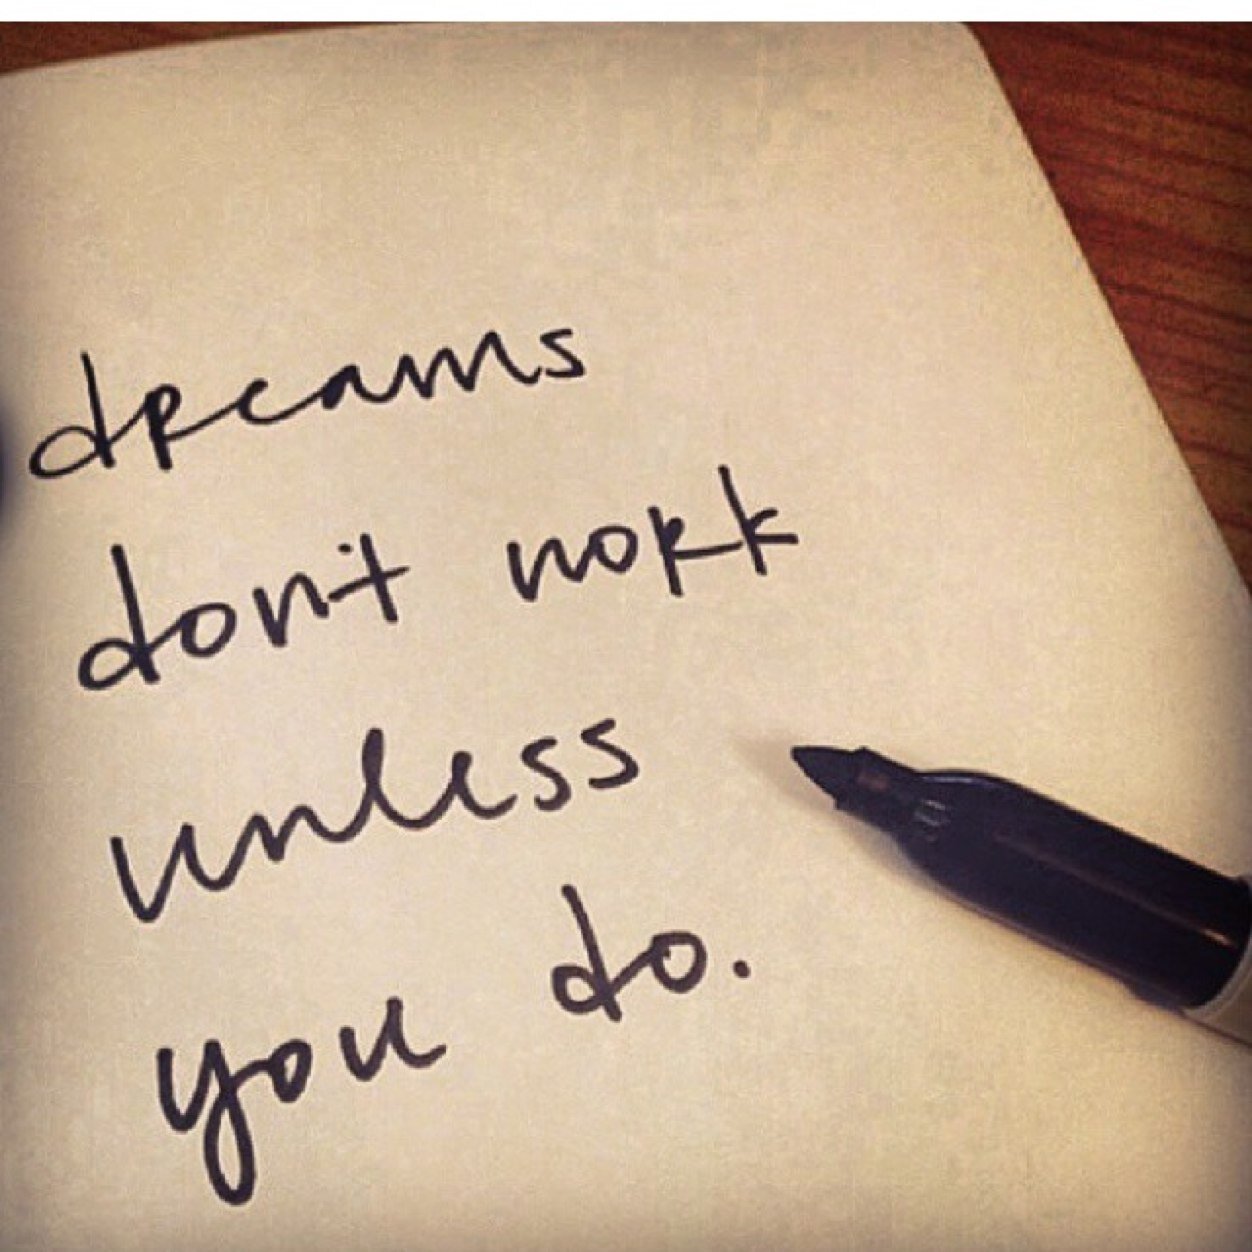 dreams
don't work
unless
you do.